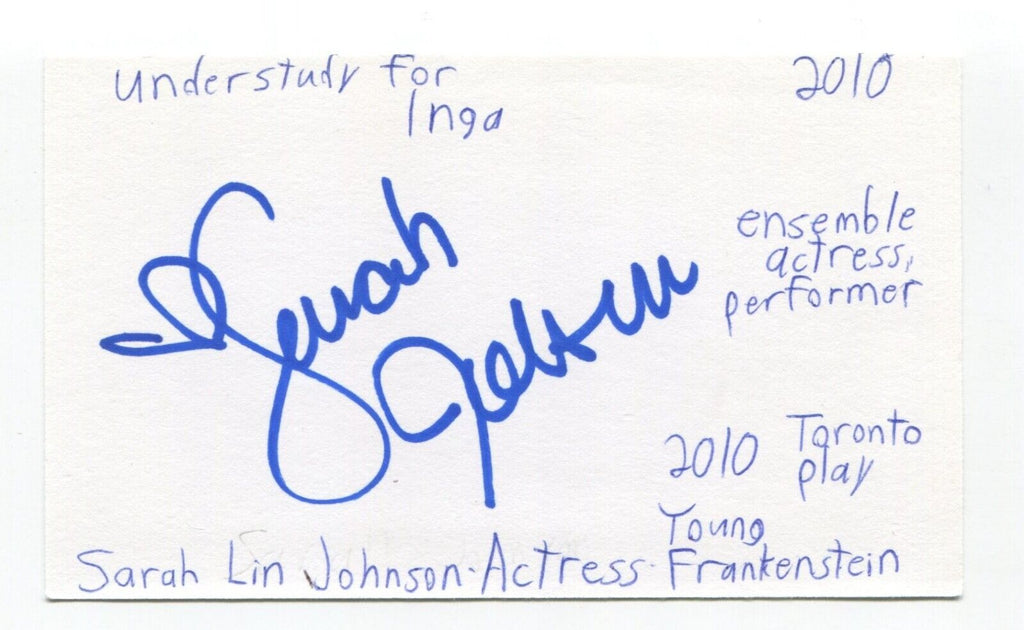 understudy for
Inga
2010
ensemble
actress,
performer
Sarah
Johnson
2010 Toronto
play
Young
Sarah Lin Johnson-Actress-Frankenstein